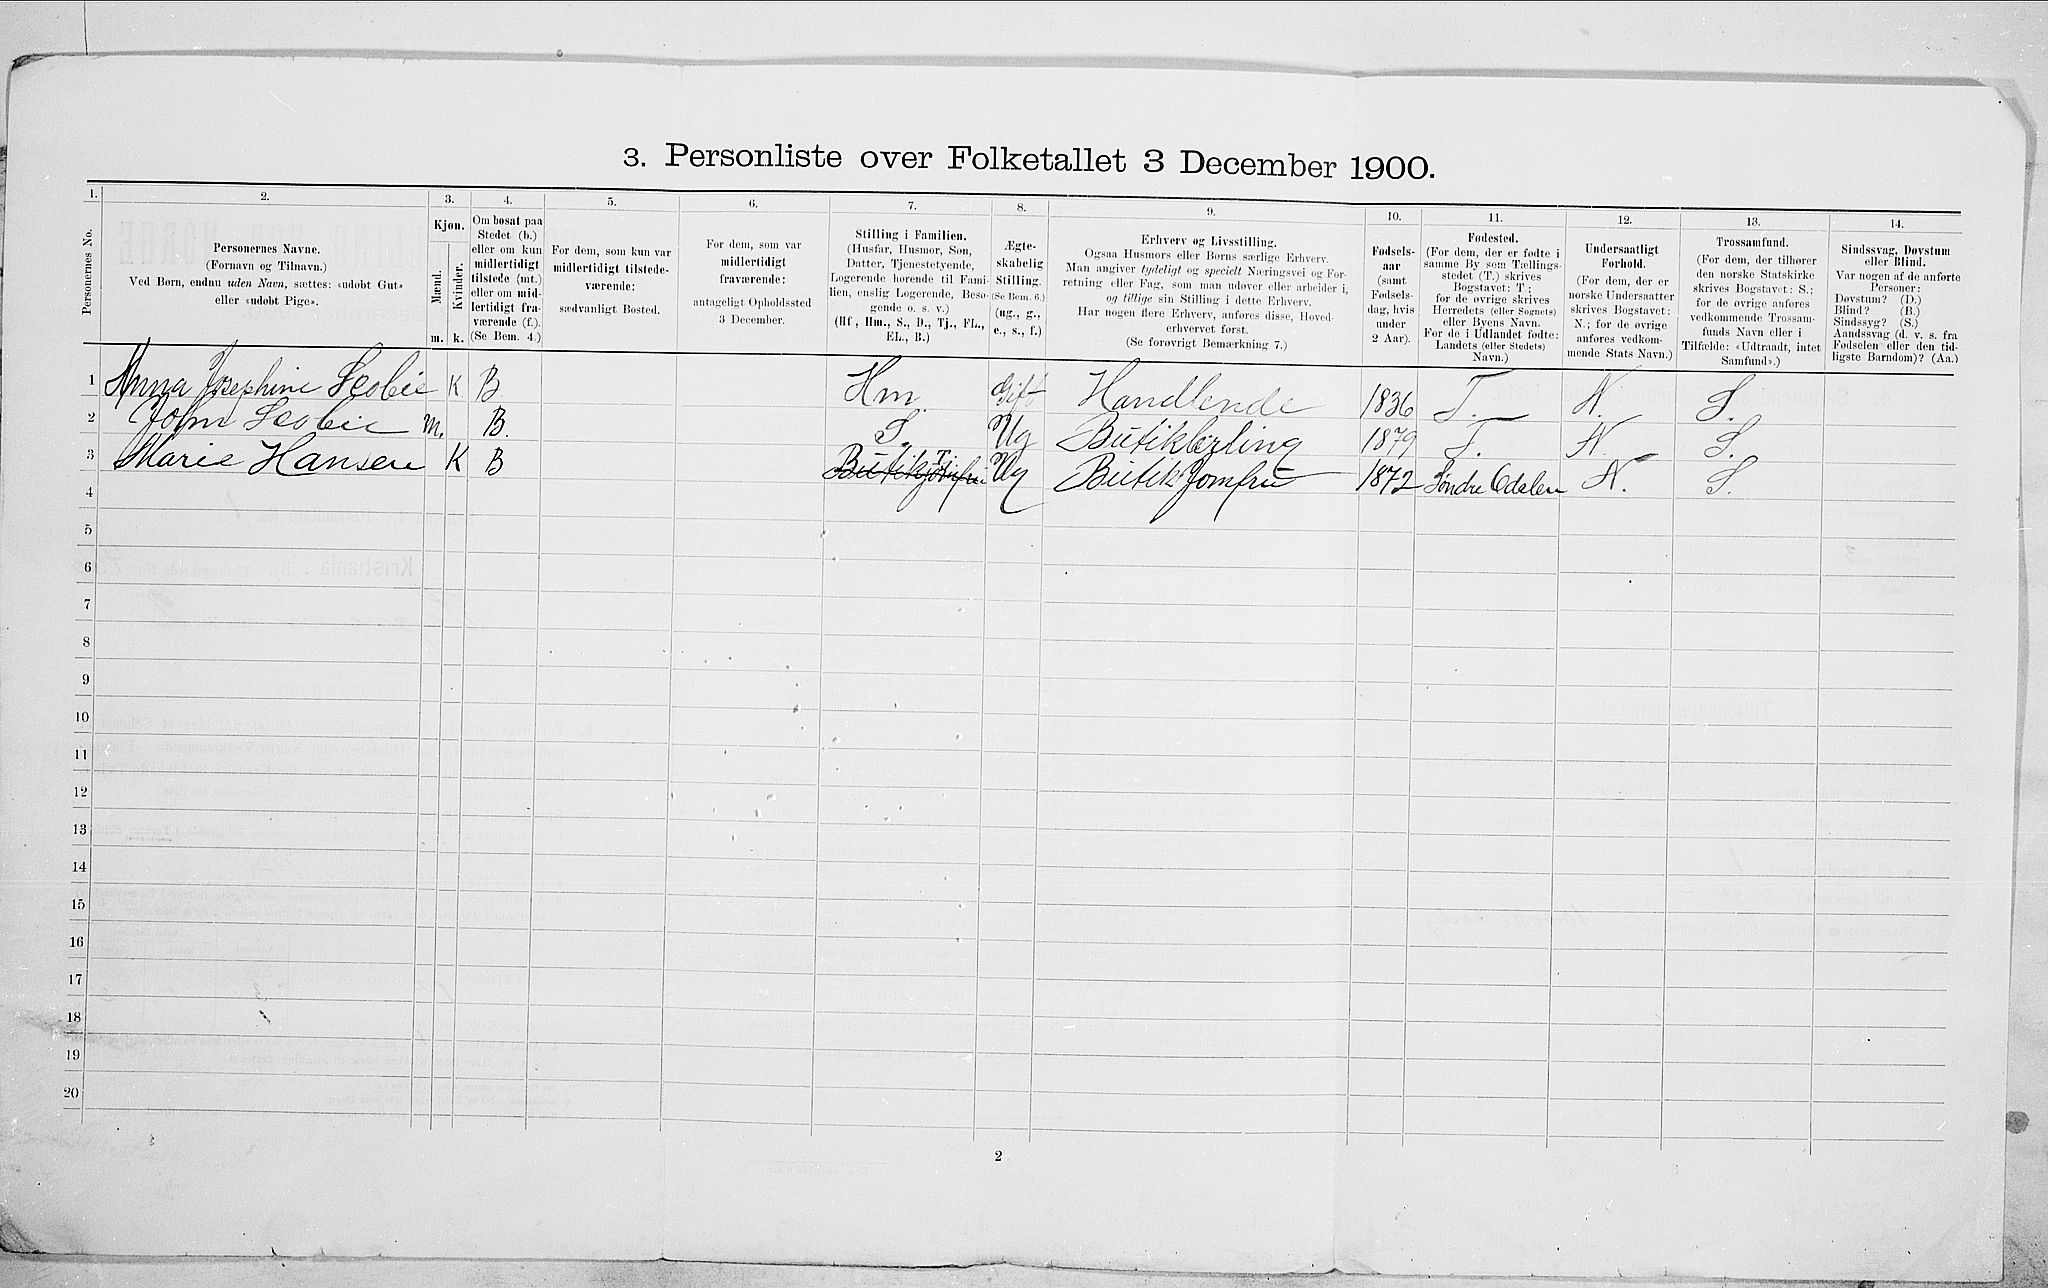 3. Personliste over Folketallet 3 December 1900.
1. 2. 3. 4. 5. 6. 7. 8. 9. 10. 11. 12. 13. 14.
Personernes No.
Personernes Navne.
(Fornavn og Tilnavn.)
Ved Børn, endnu uden Navn, sættes: «udøbt Gut»
eller «udøbt Pige».
Kjøn.
Mænd.
Kvinder.
m. k.
Om bosat paa
Stedet (b.)
eller om kun
midlertidigt
tilstede (mt.)
eller om mid-
lertidigt fra-
værende (f.).
(Se Bem. 4.)
For dem, som kun var
midlertidigt tilstede-
værende:
sædvanligt Bosted.
For dem, som var
midlertidigt
fraværende:
antageligt Opholdssted
3 December.
Stilling i Familien.
(Husfar, Husmor, Søn,
Datter, Tjenestetyende,
Logerende hørende til Fami-
lien, enslig Logerende, Besø-
gende o. s. v.)
(Hf, Hm., S., D., Tj., FL.,
EL., B.)
Ægte-
skabelig
Stilling.
(Se Bem. 6.)
(ug., g.,
e., s., f.)
Erhverv og Livsstilling.
Ogsaa Husmors eller Børns særlige Erhverv.
Man angiver tydeligt og specielt Næringsvei og For-
retning eller Fag, som man udøver eller arbeider i,
og tillige sin Stilling i dette Erhverv.
Har nogen flere Erhverv, anføres disse, Hoved-
erhvervet først.
(Se forøvrigt Bemærkning 7.)
Fødsels-
aar
(samt
Fødsels-
dag, hvis
under
2 Aar).
Fødested.
(For dem, der er fødte i
samme By som Tællings-
stedet (T.) skrives
Bogstavet: T;
for de øvrige skrives
Herredets (eller Sognets)
eller Byens Navn.
For de i Udlandet fødte:
Landets (eller Stedets)
Navn.)
Undersaatligt
Forhold.
(For dem, der er
norske Undersaatter
skrives Bogstavet:
N.; for de øvrige
anføres vedkom-
mende Stats Navn.)
Trossamfund.
(For dem, der tilhører
den norske Statskirke
skrives Bogstavet: S.;
for de øvrige anføres
vedkommende Trossam-
funds Navn eller i
Tilfælde: «Udtraadt, intet
Samfund».)
Sindssvag, Døvstum
eller Blind.
Var nogen af de anførte
Personer:
Døvstum? (D.)
Blind? (B.)
Sindssyg? (S.)
Aandssvag (d. v. s. fra
Fødselen eller den tid-
ligste Barndom)? (Aa.)
1 Anna Josephine Scobie K B Hm. Gift Handlende 1836 T. N. S.
2 John Scobie m. B. S. Ug Butikbetling 1879 T. N. S.
3 Marie Hansen K B Butikjomfru Tj. Ug Butik Jomfru 1872 Søndre Odalen N. S.
4
5
6
7
8
9
10
11
12
13
14
15
16
17
18
19
20
2